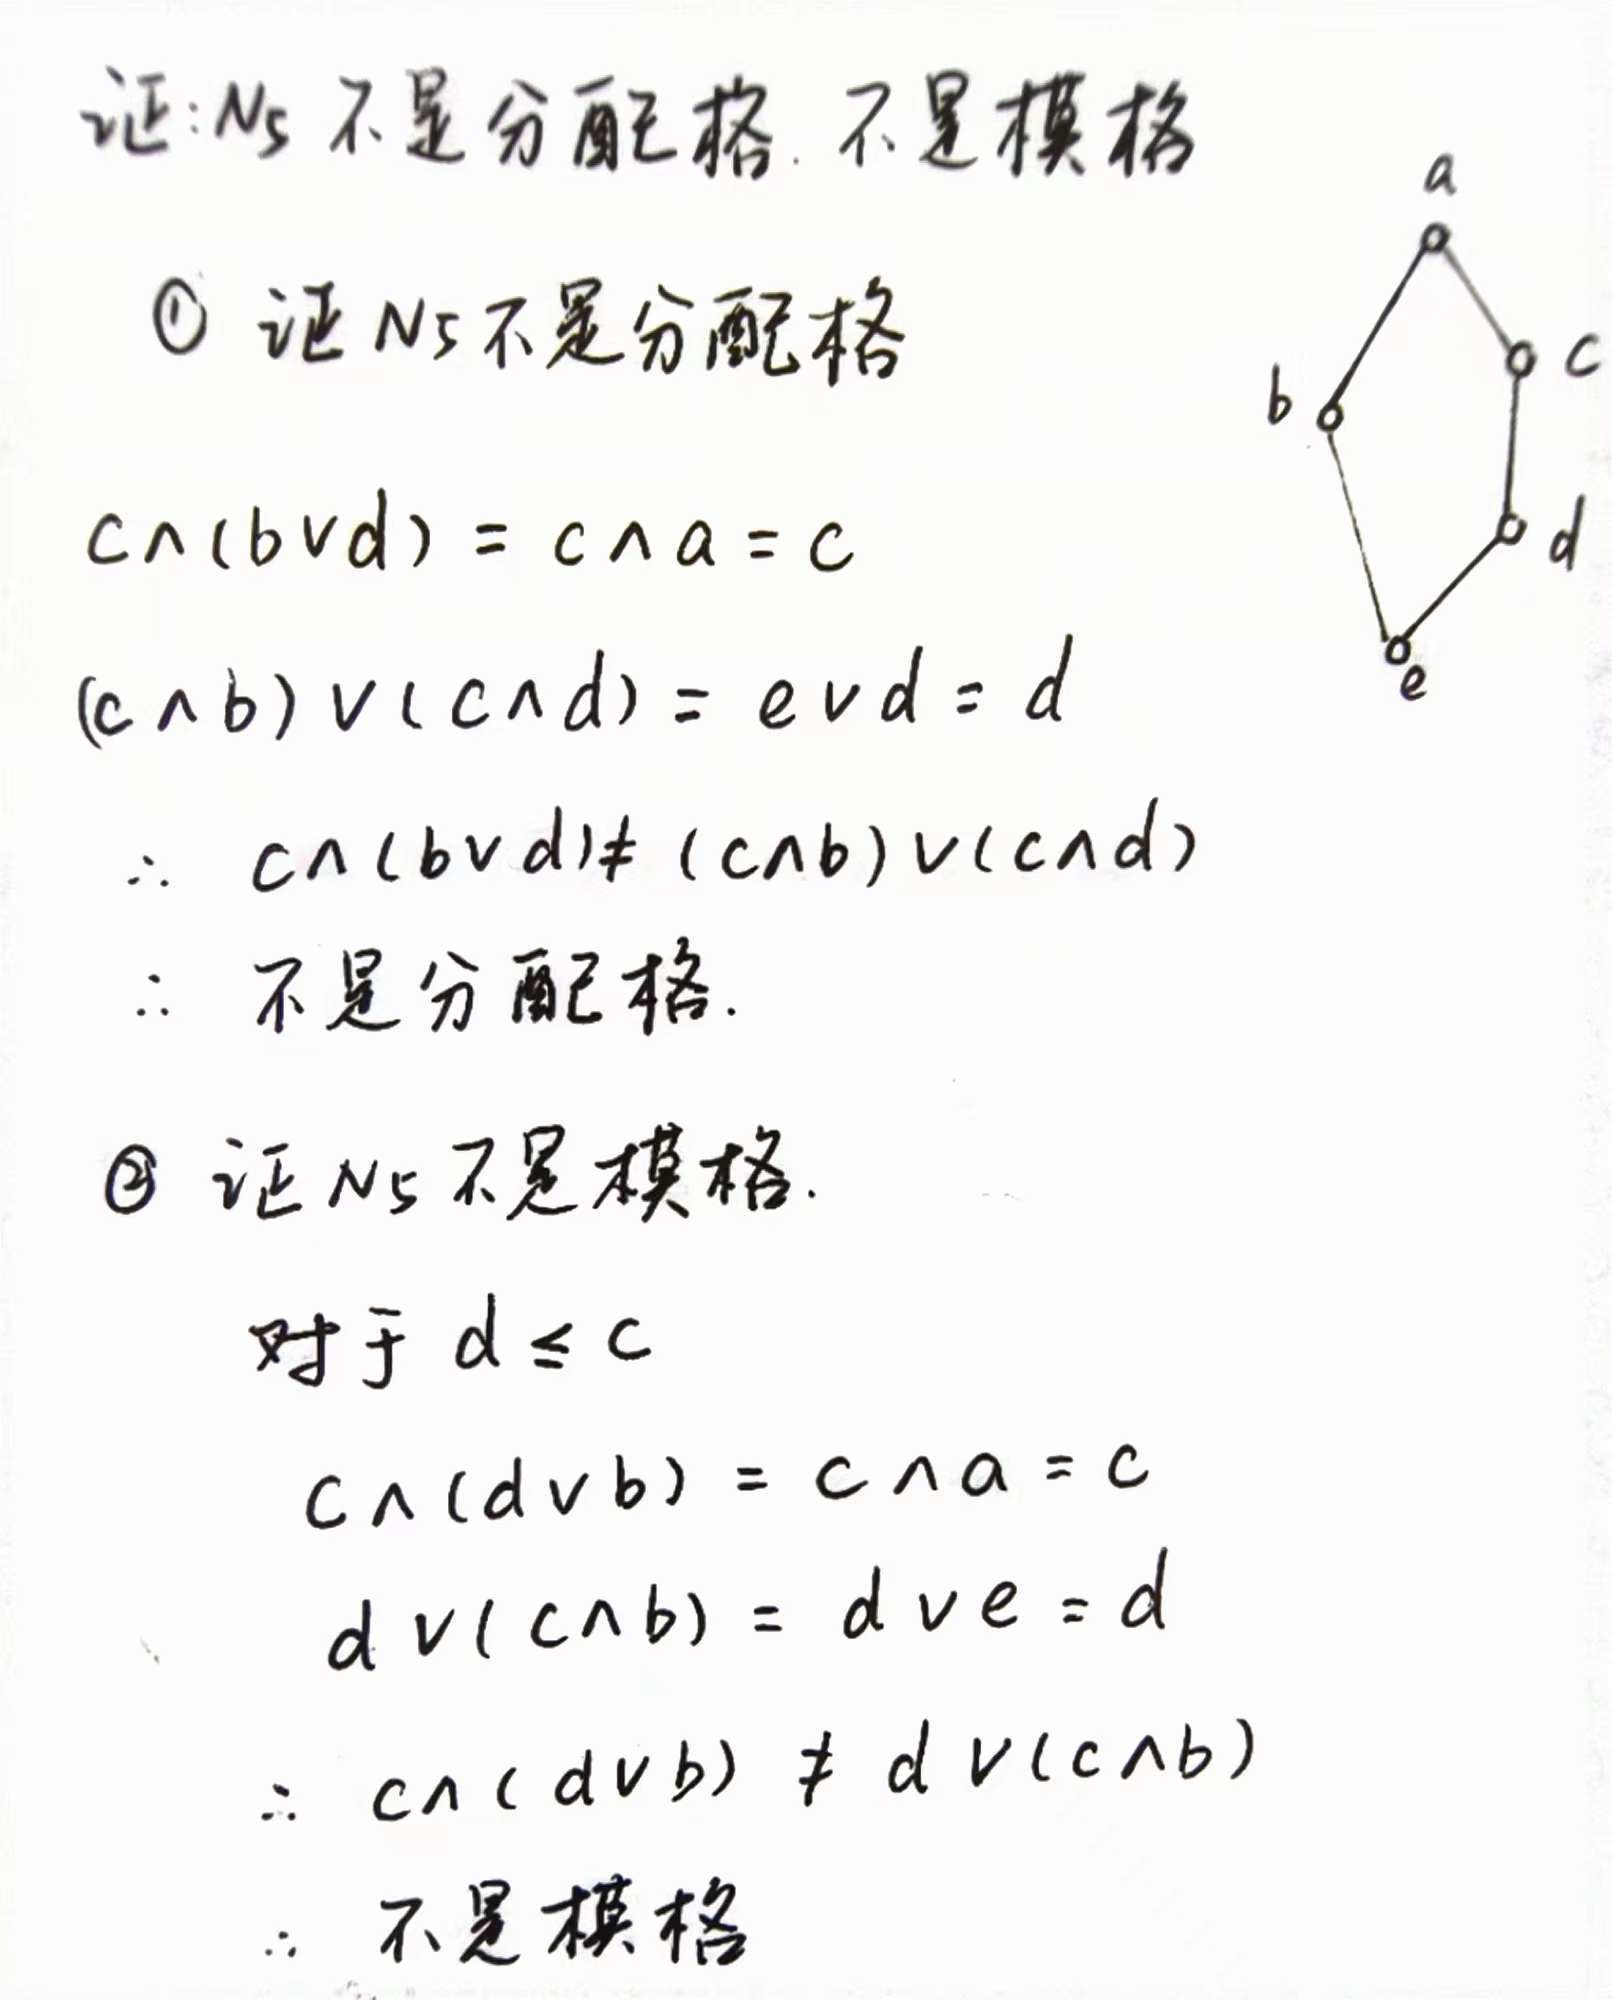 证:N5 不是分配格. 不是模格
a
① 证 N5 不是分配格
c
b
c∧(b∨d) = c∧a = c
d
(c∧b)∨(c∧d) = e∨d = d
e
∴ c∧(b∨d)≠(c∧b)∨(c∧d)
∴ 不是分配格.
② 证 N5 不是模格.
对于 d ≤ c
c∧(d∨b) = c∧a = c
d∨(c∧b) = d∨e = d
∴ c∧(d∨b) ≠ d∨(c∧b)
∴ 不是模格